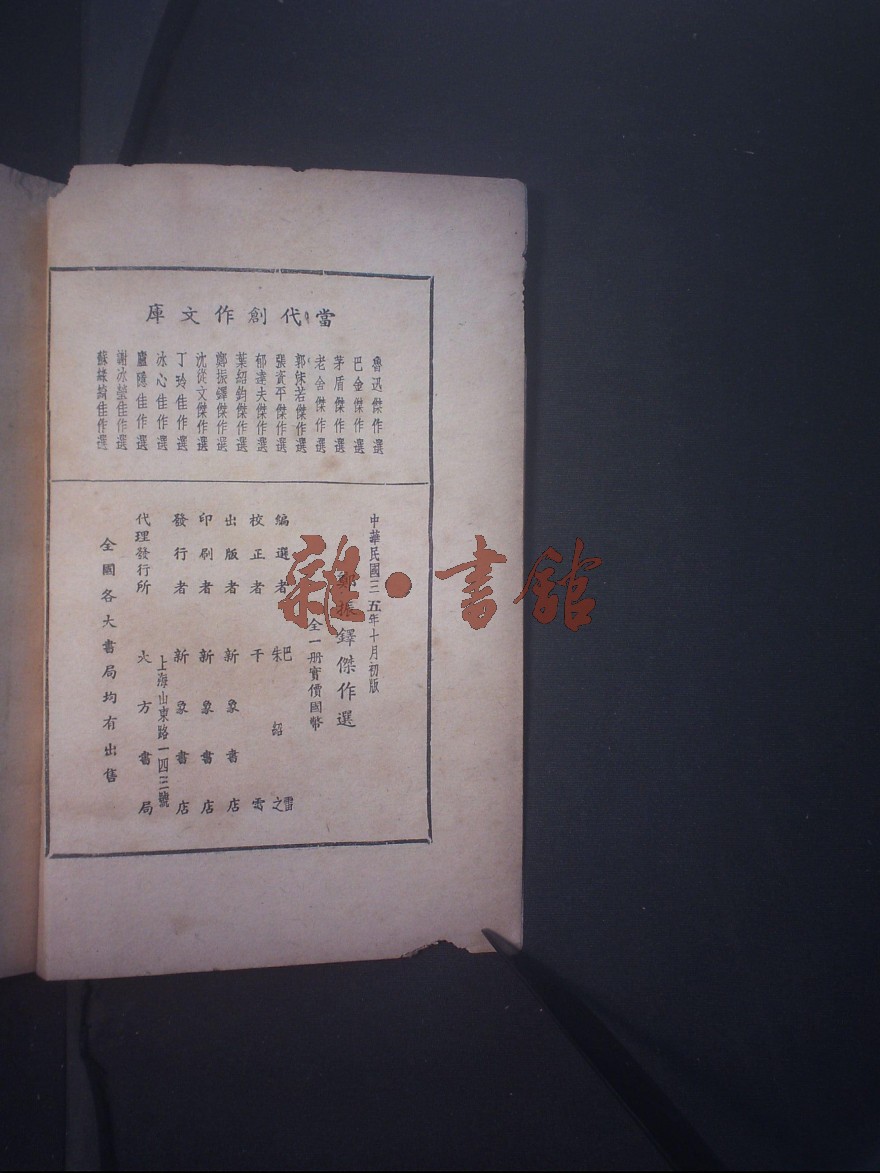 當代創作文庫
魯迅傑作選
巴金傑作選
茅盾傑作選
老舍傑作選
郭沫若傑作選
張資平傑作選
郁達夫傑作選
葉紹鈞傑作選
鄭振鐸傑作選
沈從文傑作選
丁玲佳作選
冰心佳作選
廬隱佳作選
謝冰瑩佳作選
蘇綠漪佳作選
中華民國三五年十月初版
鄭振鐸傑作選
全一册實價國幣
編選者 巴雷 朱紹之
校正者 干雲
出版者 新象書店
印刷者 新象書店
發行者 新象書店
上海山東路一四三號
代理發行所 大方書局
全國各大書局均有出售
雜·書館